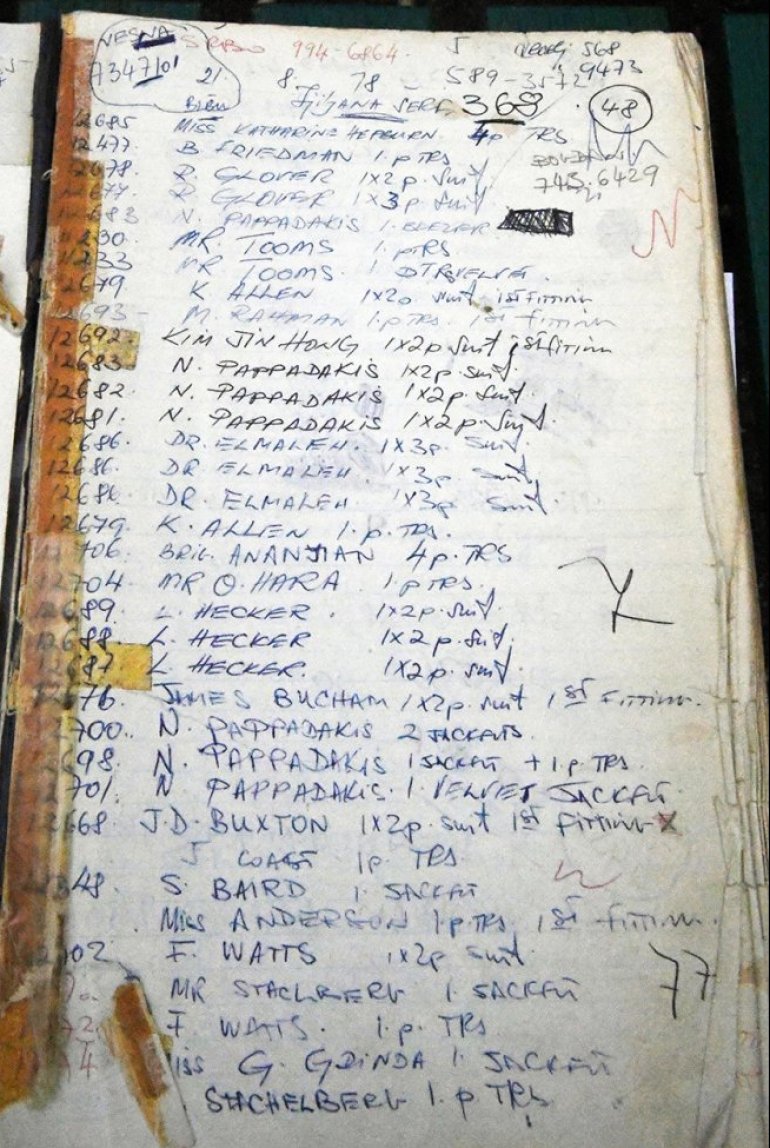 NESNA SRBO 994-6864. J 568
7347101 21 8. 78 589-3572 9473
368 48
12685 MISS KATHARINE HEPBURN 4p TRS
12477 B FRIEDMAN 1.p TRS
2678 R. GLOVER 1x2p. Suit 743.6429
2677 R GLOVER 1x3p. Suit
2683 N. PAPPADAKIS 1.BLEZER
230. MR. TOOMS 1. pTRS
233 MR TOOMS. 1
12679 K ALLEN 1x2p Suit 1st fitting
12693- M. RAHMAN 1.p TRS. 1st fitting
12692. KIM JIN HONG 1x2p Suit 1st fitting
12683. N. PAPPADAKIS 1x2p. Suit
12682 N. PAPPADAKIS 1x2p. Suit.
12681. N. PAPPADAKIS 1x2p. Suit.
12686. DR. ELMALEH. 1x3p. Suit
12686. DR ELMALEH 1x3p. Suit
12686 DR. ELMALEH 1x3p Suit
12679. K. ALLEN 1.p. TRS.
12706. BRIG. ANANJIAN 4p. TRS
12704 MR O. HARA 1.p TRS.
12689. L. HECKER. 1x2p. Suit.
12688. L. HECKER 1x2p. Suit.
12687. L HECKER. 1x2p. Suit.
2676 JAMES BUCHAM 1x2p. Suit 1st fitting.
2700. N. PAPPADAKIS 2 JACKETS.
2698 N. PAPPADAKIS 1 JACKET + 1.p TRS
2701 N PAPPADAKIS. 1 VELVET JACKET
12668 J.D. BUXTON 1x2p. suit 1st fitting X
J COAST 1p. TRS
48. S. BAIRD 1. JACKET
MISS ANDERSON 1.p TRS. 1st fitting.
2702 F. WATTS 1x2p Suit. 77
MR STACHBERG 1. JACKET
72 F. WATTS. 1.p. TRS
G. 1. JACKET
STACHELBERG 1.p TRS